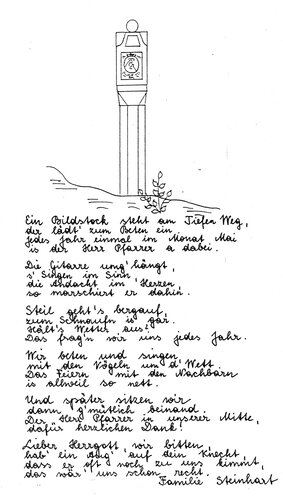 Ein Bildstock steht am Tiefen Weg,
der lädt' zum Beten ein
jedes Jahr einmal im Monat Mai
is der Herr Pfarrer a dabei.
Die Gitarre umg'hängt,
s'Singen im Sinn,
die Andacht im 'Herzen,
so marschiert er dahin.
Steil geht's bergauf,
zum Schnaufn is gar.
Hält's Wetter aus?
Das frag'n wir uns jedes Jahr.
Wir beten und singen
mit den Vögeln um d'Wett.
Das Feiern mit den Nachbarn
is allweil so nett.
Und später sitzen wir
dann g'mütlich beinand.
Der Herr Pfarrer in unserer Mitte,
dafür herzlichen Dank!
Lieber Herrgott wir bitten,
hab' ein Aug' auf dein Knecht,
dass er oft noch zu uns kimmt,
das wär' uns schon recht.
Familie Steinhart